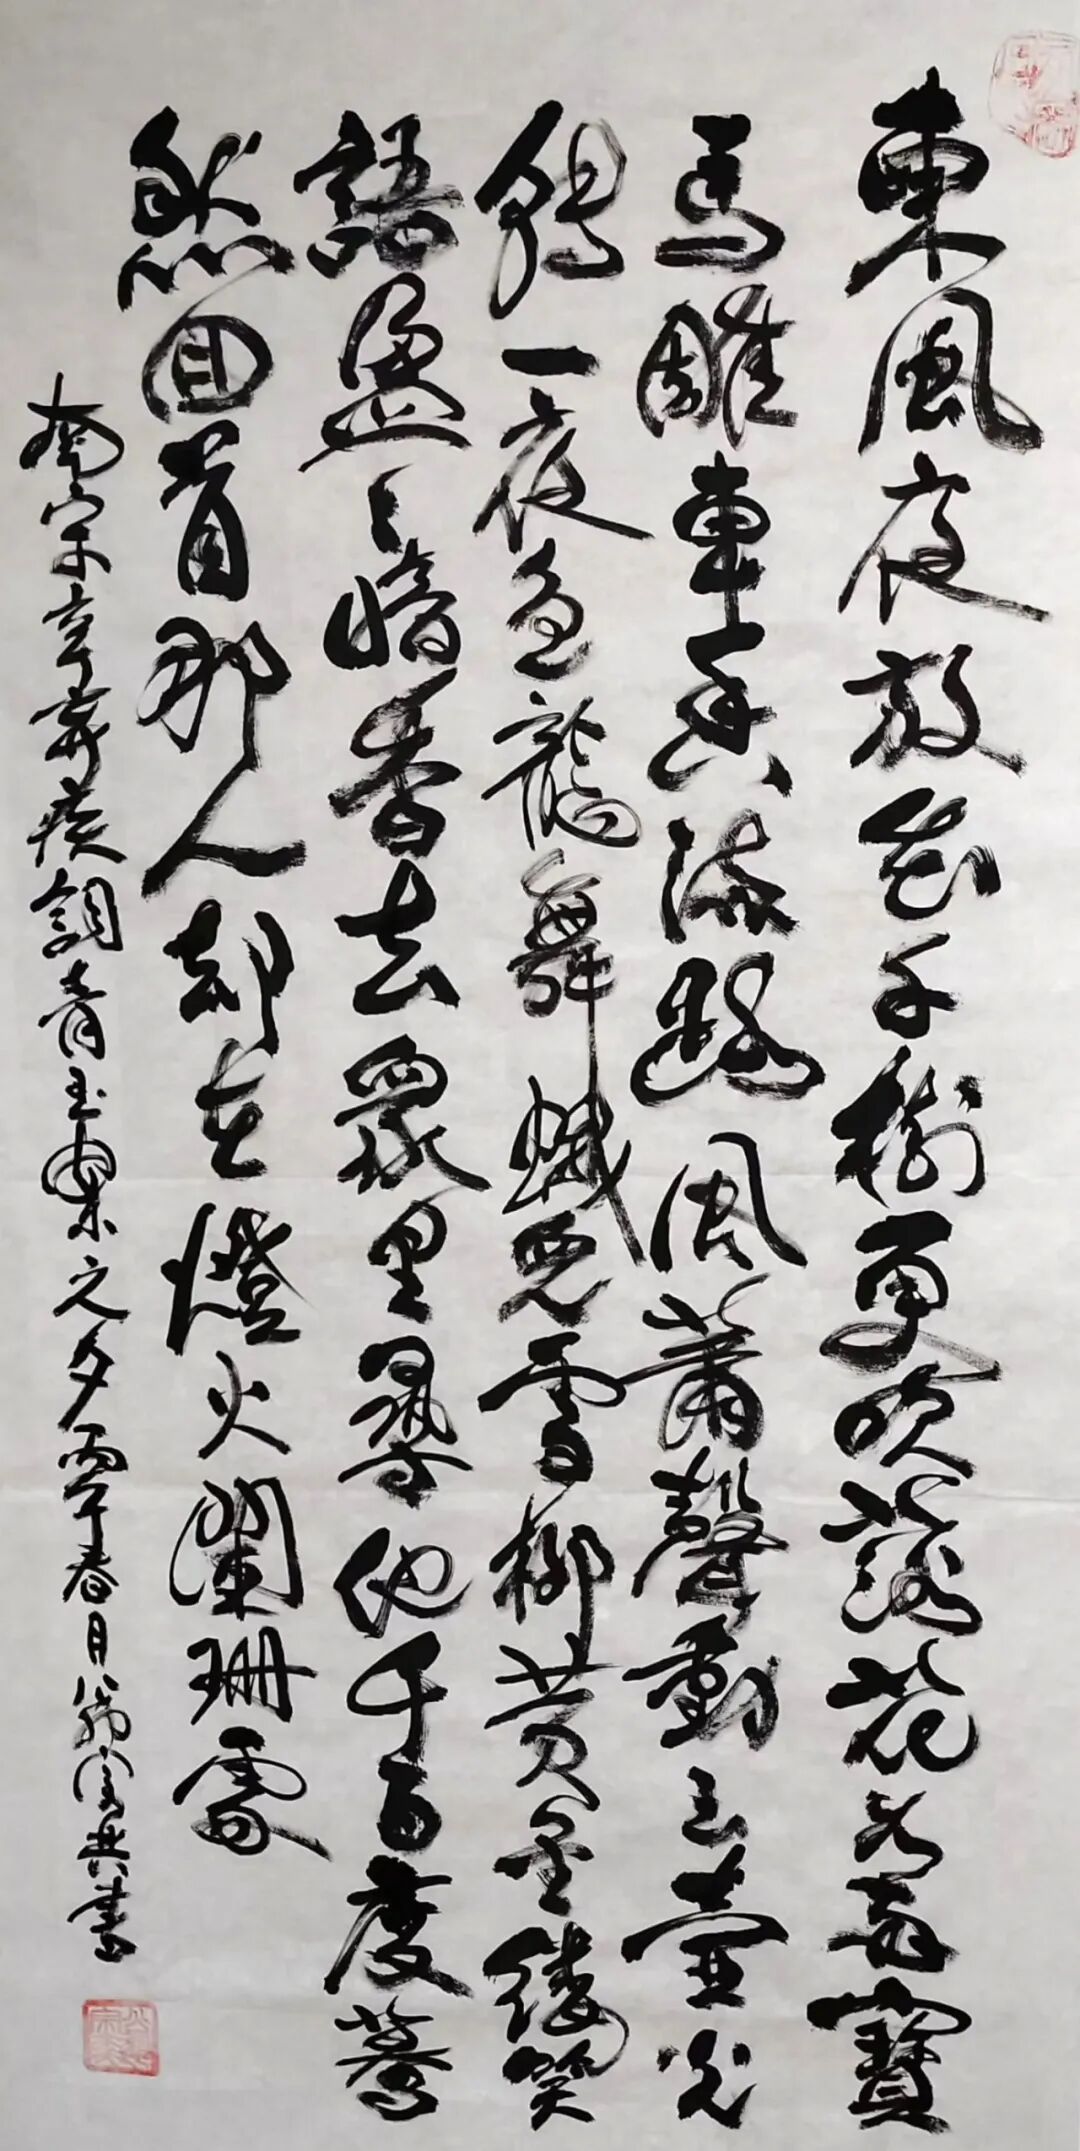 東風夜放花千樹更吹落花如雨寶
馬雕車香滿路鳳蕭聲動玉壺光
轉一夜魚龍舞蛾兒雪柳黃金縷笑
語盈々暗香去眾里尋他千百度驀
然回首那人却在燈火瀾珊處
南宋辛棄疾詞青玉案元夕丙午春月書